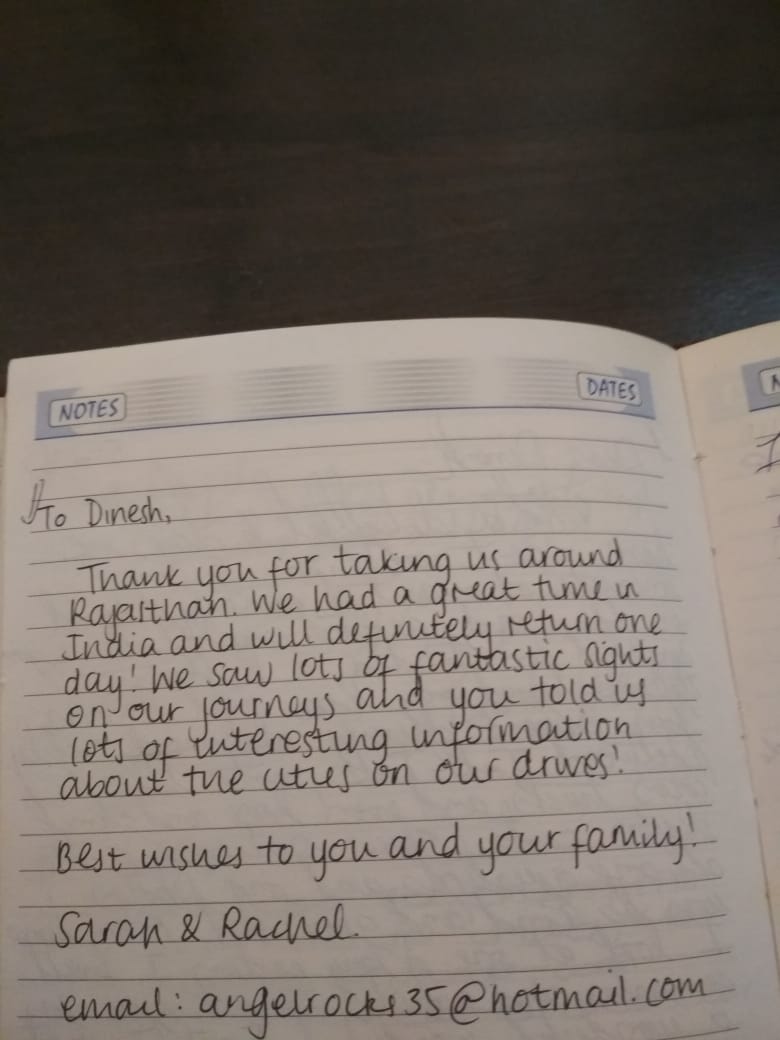 NOTES DATES
To Dinesh,
Thank you for taking us around
Rajasthan. We had a great time in
India and will definitely return one
day! We saw lots of fantastic sights
on our journeys and you told us
lots of interesting information
about the cities on our drives!
Best wishes to you and your family!
Sarah & Rachel.
email: angelrocks35@hotmail.com